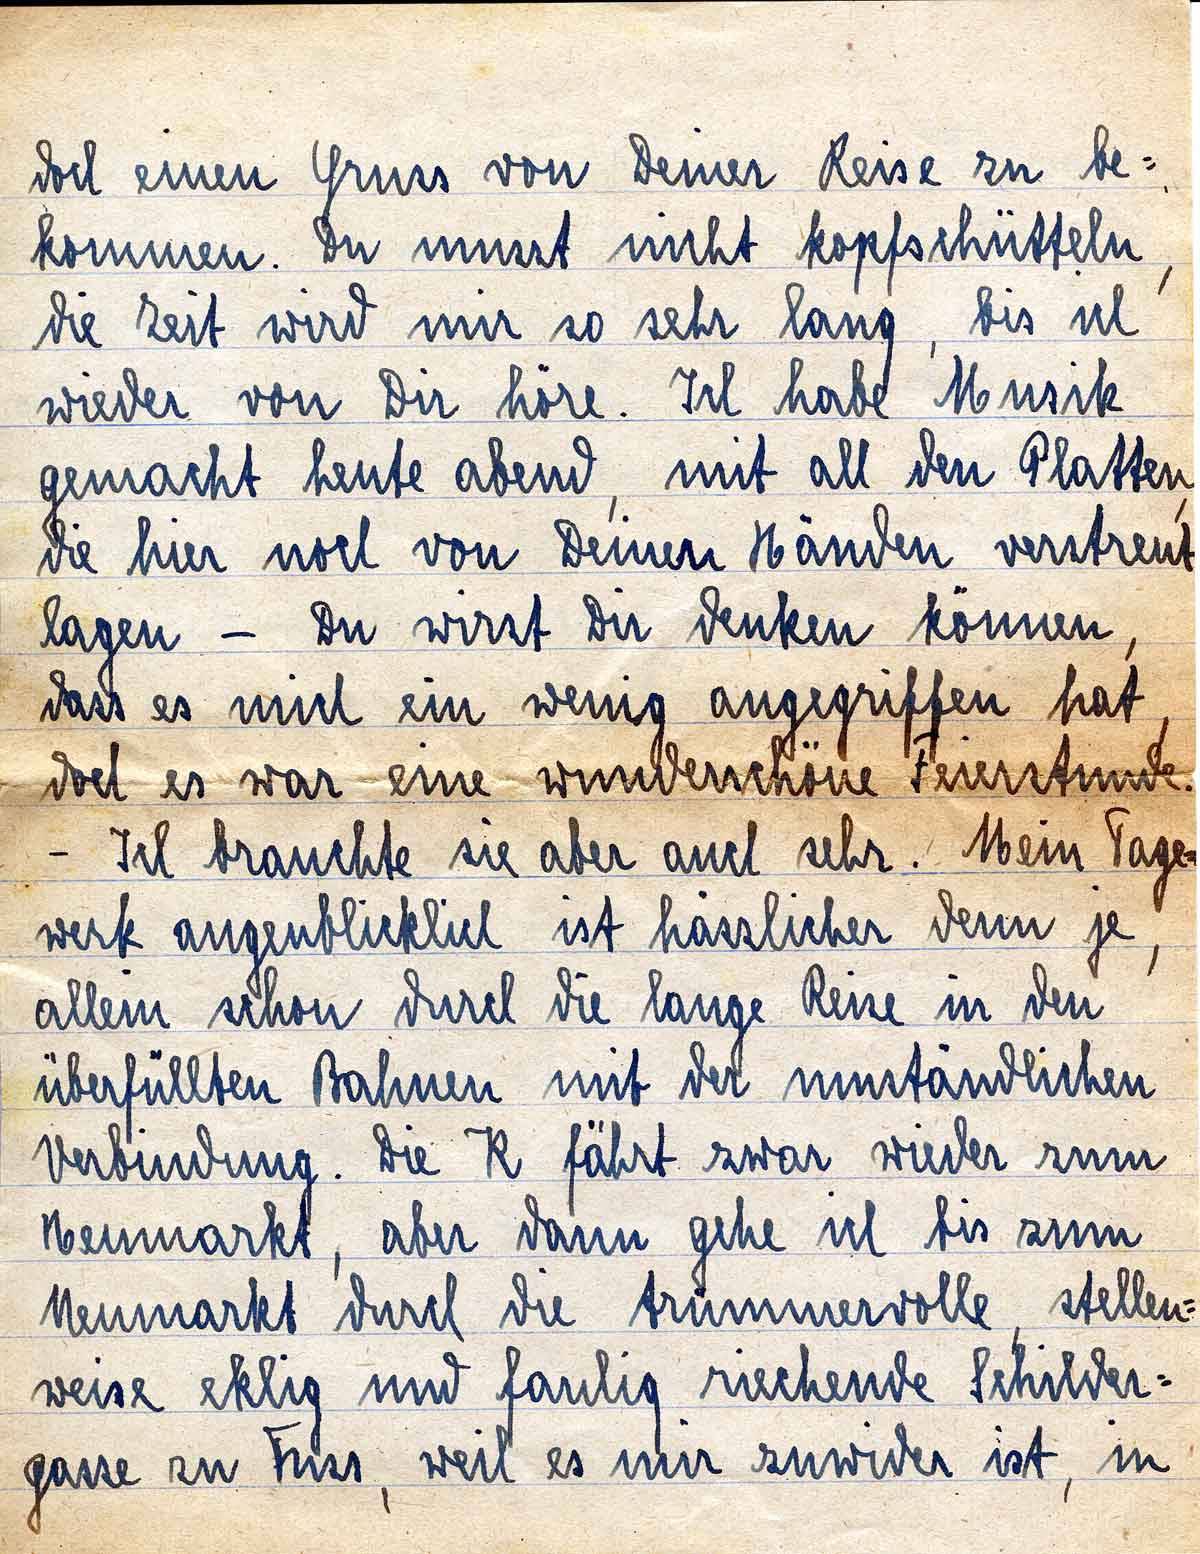 doch einen Gruss von Deiner Reise zu be=
kommen. Du musst nicht kopfschütteln,
die Zeit wird mir so sehr lang, bis ich
wieder von Dir höre. Ich habe Musik
gemacht heute abend, mit all den Platten,
die hier noch von Deinen Händen verstreut
lagen – Du wirst Dir denken können,
dass es mich ein wenig angegriffen hat,
doch es war eine wunderschöne Feierstunde.
– Ich brauchte sie aber auch sehr. Mein Tage=
werk augenblicklich ist hässlicher denn je,
allein schon durch die lange Reise in den
überfüllten Bahnen mit der umständlichen
Verbindung. Die K fährt zwar wieder zum
Neumarkt, aber dann gehe ich bis zum
Neumarkt durch die trümmervolle, stellen=
weise eklig und faulig riechende Schilder=
gasse zu Fuss, weil es mir zuwider ist, in